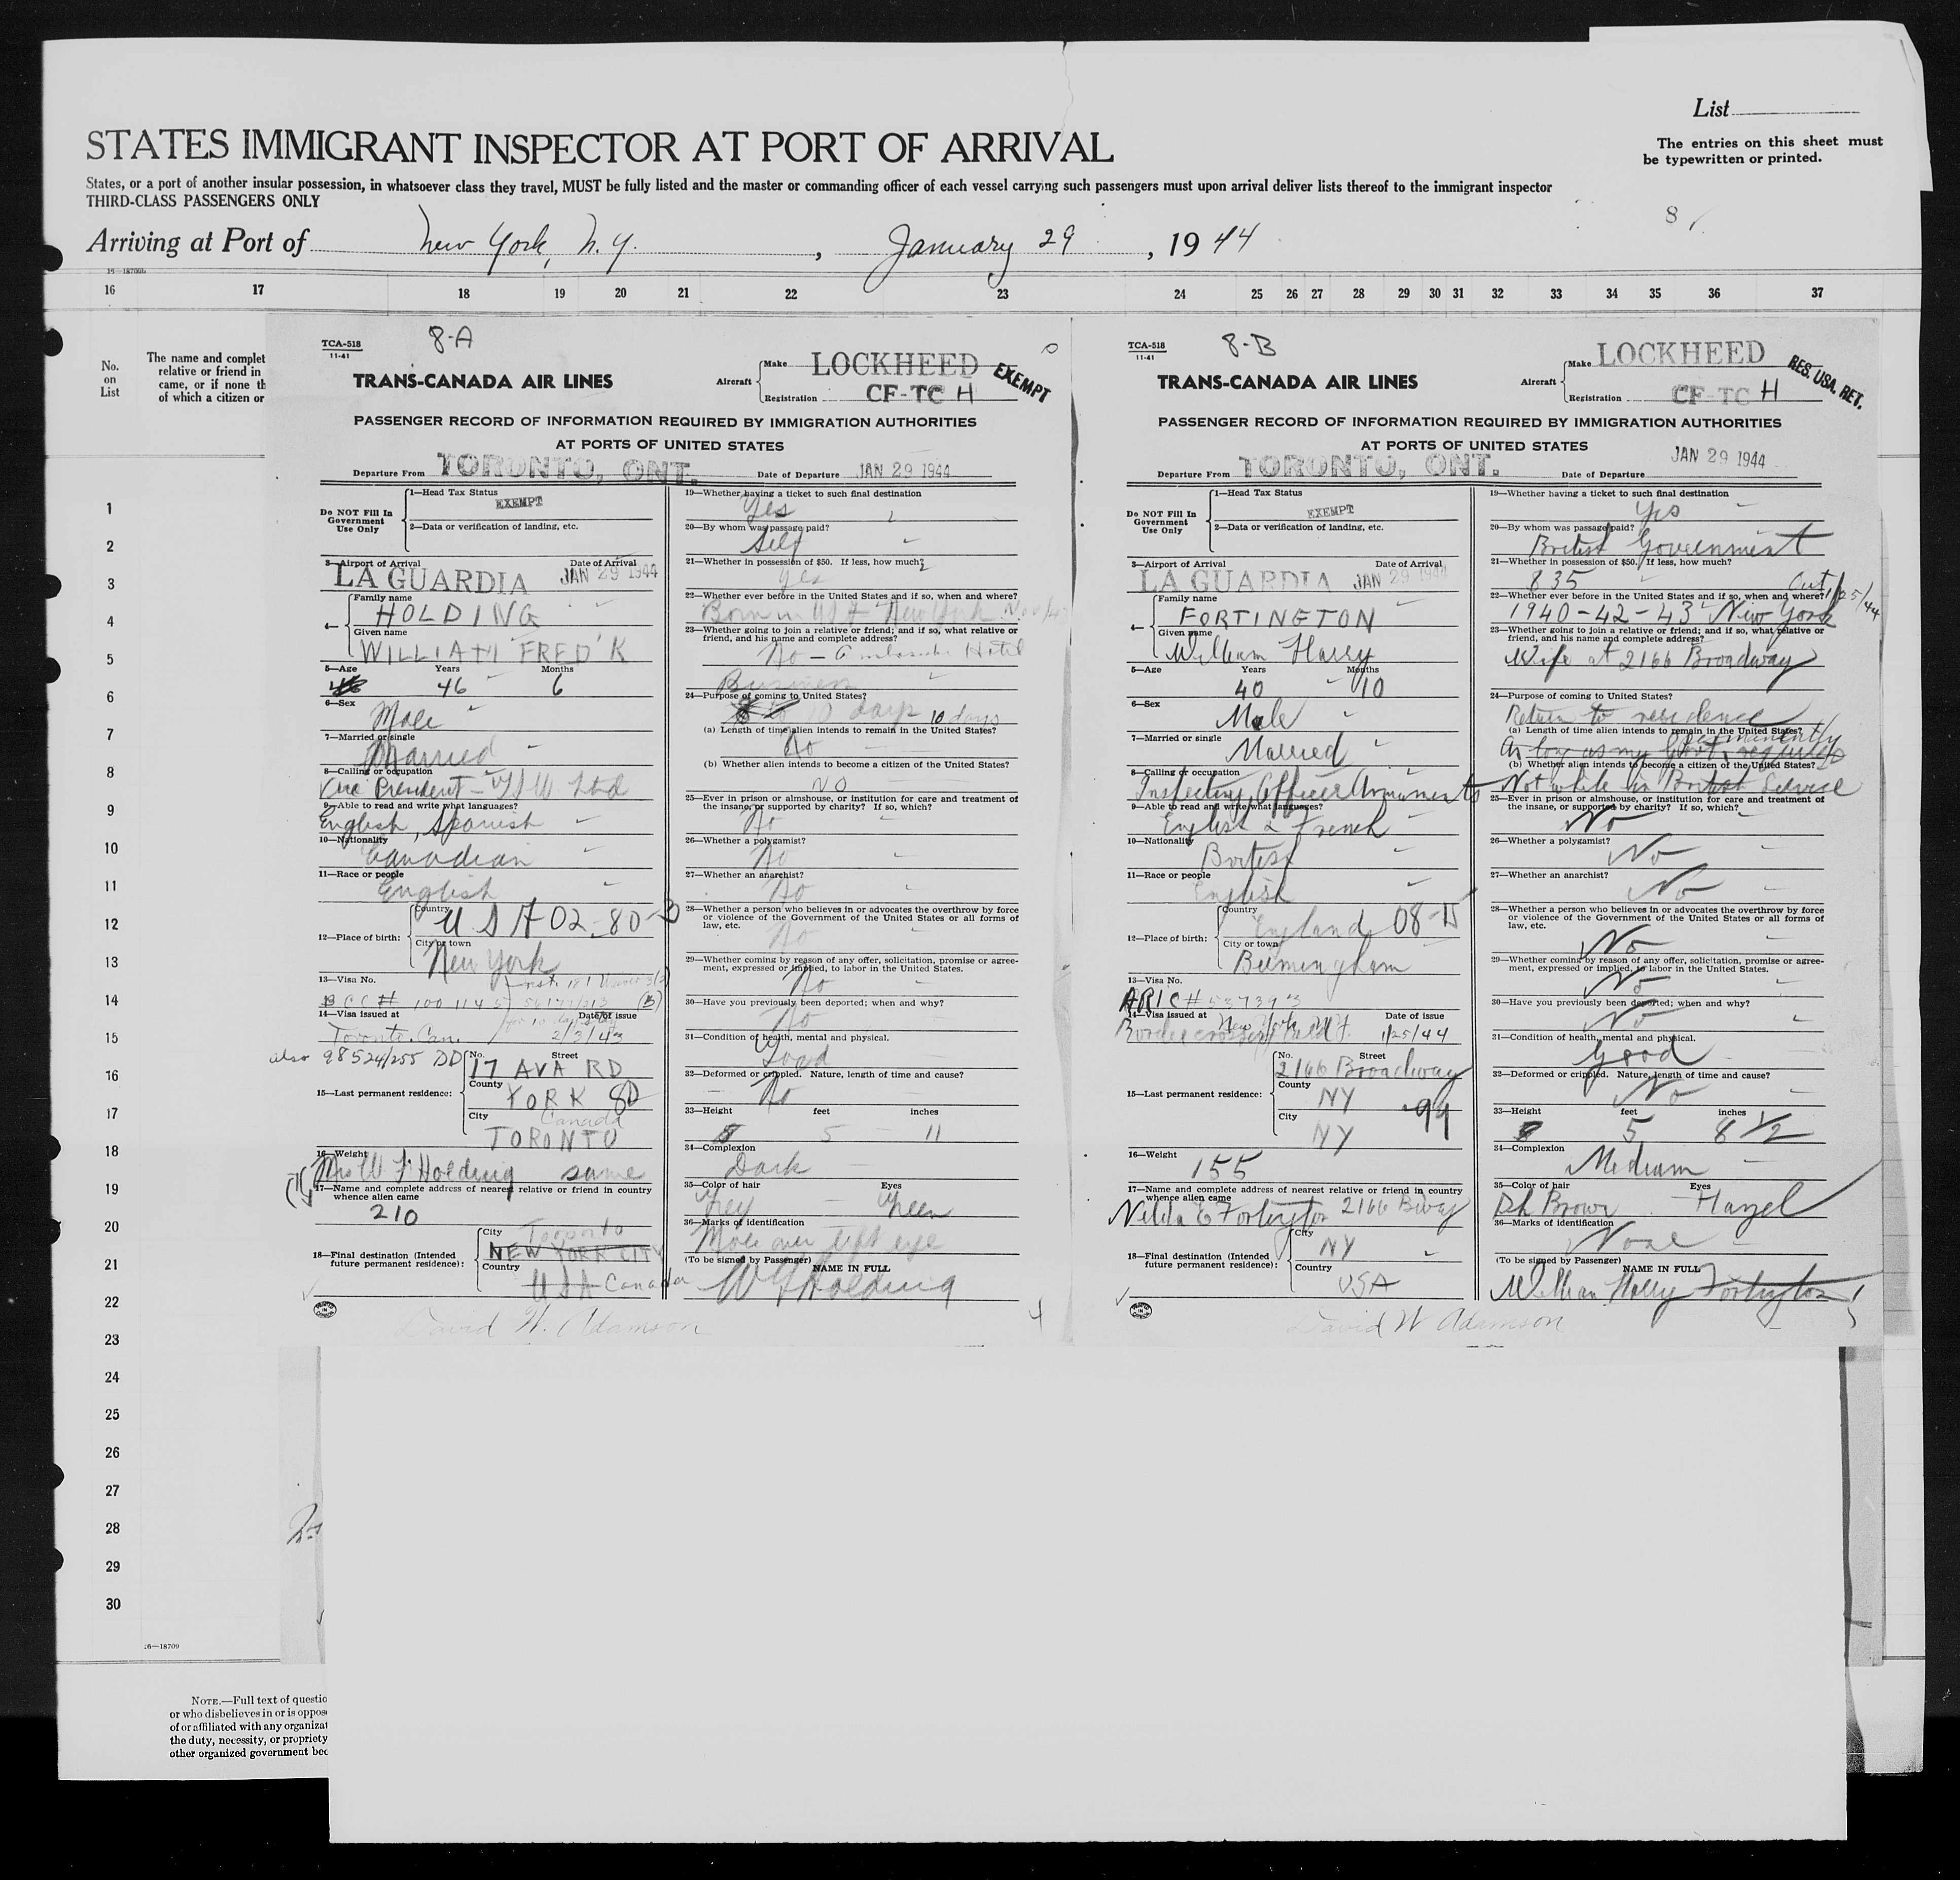 List
STATES IMMIGRANT INSPECTOR AT PORT OF ARRIVAL
The entries on this sheet must
be typewritten or printed.
States, or a port of another insular possession, in whatsoever class they travel, MUST be fully listed and the master or commanding officer of each vessel carrying such passengers must upon arrival deliver lists thereof to the immigrant inspector
THIRD-CLASS PASSENGERS ONLY
8
Arriving at Port of New York, N.Y., January 29, 1944
16 17 18 19 20 21 22 23 24 25 26 27 28 29 30 31 32 33 34 35 36 37
No.
on
List
The name and complet
relative or friend in
came, or if none th
of which a citizen or
1
2
3
4
5
6
7
8
9
10
11
12
13
14
15
16
17
18
19
20
21
22
23
24
25
26
27
28
29
30
16—18709
NOTE.—Full text of questio
or who disbelieves in or is oppos
of or affiliated with any organizat
the duty, necessity, or propriety
other organized government bec
TCA-518
11-41
8-A
TRANS-CANADA AIR LINES
Aircraft
Make LOCKHEED
Registration CF-TC H
EXEMPT
PASSENGER RECORD OF INFORMATION REQUIRED BY IMMIGRATION AUTHORITIES
AT PORTS OF UNITED STATES
Departure From TORONTO, ONT. Date of Departure JAN 29 1944
Do NOT Fill In
Government
Use Only
1—Head Tax Status
EXEMPT
2—Data or verification of landing, etc.
3—Airport of Arrival Date of Arrival
LA GUARDIA JAN 29 1944
4—
Family name
HOLDING
Given name
WILLIAM FRED'K
5—Age Years Months
46 6
6—Sex
Male
7—Married or single
Married
8—Calling or occupation
Vice President Ltd
9—Able to read and write what languages?
English, Spanish
10—Nationality
Canadian
11—Race or people
English
12—Place of birth:
Country
USA 02-80-3
City or town
New York
13—Visa No.
BCC#
14—Visa issued at Date of issue
Toronto, Can. 2/3/43
also 98524/255 DD
15—Last permanent residence:
No. Street
17 AVA RD
County
YORK
City Canada
TORONTO
16—Weight
Mrs W F Holding same
17—Name and complete address of nearest relative or friend in country
whence alien came
210
18—Final destination (Intended
future permanent residence):
City Toronto
NEW YORK CITY
Country
USA Canada
19—Whether having a ticket to such final destination
Yes
20—By whom was passage paid?
Self
21—Whether in possession of $50. If less, how much?
Yes
22—Whether ever before in the United States and if so, when and where?
Born in USA New York
23—Whether going to join a relative or friend; and if so, what relative or
friend, and his name and complete address?
No — Hotel
Business
24—Purpose of coming to United States?
10 days 10 days
(a) Length of time alien intends to remain in the United States?
No
(b) Whether alien intends to become a citizen of the United States?
NO
25—Ever in prison or almshouse, or institution for care and treatment of
the insane, or supported by charity? If so, which?
No
26—Whether a polygamist?
No
27—Whether an anarchist?
No
28—Whether a person who believes in or advocates the overthrow by force
or violence of the Government of the United States or all forms of
law, etc.
No
29—Whether coming by reason of any offer, solicitation, promise or agree-
ment, expressed or implied, to labor in the United States.
No
30—Have you previously been deported; when and why?
No
31—Condition of health, mental and physical.
Good
32—Deformed or crippled. Nature, length of time and cause?
No
33—Height feet inches
5 11
34—Complexion
Dark
35—Color of hair Eyes
Grey Green
36—Marks of identification
Mole over left eye
(To be signed by Passenger) NAME IN FULL
W F Holding
David W. Adamson
TCA-518
11-41
8-B
TRANS-CANADA AIR LINES
Aircraft
Make LOCKHEED
Registration CF-TC H
RES. USA. RET.
PASSENGER RECORD OF INFORMATION REQUIRED BY IMMIGRATION AUTHORITIES
AT PORTS OF UNITED STATES
Departure From TORONTO, ONT. Date of Departure JAN 29 1944
Do NOT Fill In
Government
Use Only
1—Head Tax Status
EXEMPT
2—Data or verification of landing, etc.
3—Airport of Arrival Date of Arrival
LA GUARDIA JAN 29 1944
4—
Family name
FORTINGTON
Given name
William Harry
5—Age Years Months
40 10
6—Sex
Male
7—Married or single
Married
8—Calling or occupation
Inspecting Officer Armaments
9—Able to read and write what languages?
English & French
10—Nationality
British
11—Race or people
English
12—Place of birth:
Country
England 08-15
City or town
Birmingham
13—Visa No.
ARIC#
14—Visa issued at Date of issue
New York 1/25/44
15—Last permanent residence:
No. Street
2166 Broadway
County
NY
99
City
NY
16—Weight
155
17—Name and complete address of nearest relative or friend in country
whence alien came
E Fortington 2166 Bway
18—Final destination (Intended
future permanent residence):
City
NY
Country
USA
19—Whether having a ticket to such final destination
Yes
20—By whom was passage paid?
British Government
21—Whether in possession of $50. If less, how much?
835
Out 1/25/44
22—Whether ever before in the United States and if so, when and where?
1940-42-43 New York
23—Whether going to join a relative or friend; and if so, what relative or
friend, and his name and complete address?
Wife at 2166 Broadway
24—Purpose of coming to United States?
Return to residence
permanently
(a) Length of time alien intends to remain in the United States?
As long as my Govt. requires
(b) Whether alien intends to become a citizen of the United States?
Not while in British Service
25—Ever in prison or almshouse, or institution for care and treatment of
the insane, or supported by charity? If so, which?
No
26—Whether a polygamist?
No
27—Whether an anarchist?
No
28—Whether a person who believes in or advocates the overthrow by force
or violence of the Government of the United States or all forms of
law, etc.
No
29—Whether coming by reason of any offer, solicitation, promise or agree-
ment, expressed or implied, to labor in the United States.
No
30—Have you previously been deported; when and why?
No
31—Condition of health, mental and physical.
Good
32—Deformed or crippled. Nature, length of time and cause?
No
33—Height feet inches
5 8 1/2
34—Complexion
Medium
35—Color of hair Eyes
Dk Brown Hazel
36—Marks of identification
None
(To be signed by Passenger) NAME IN FULL
William Harry Fortington
David W Adamson